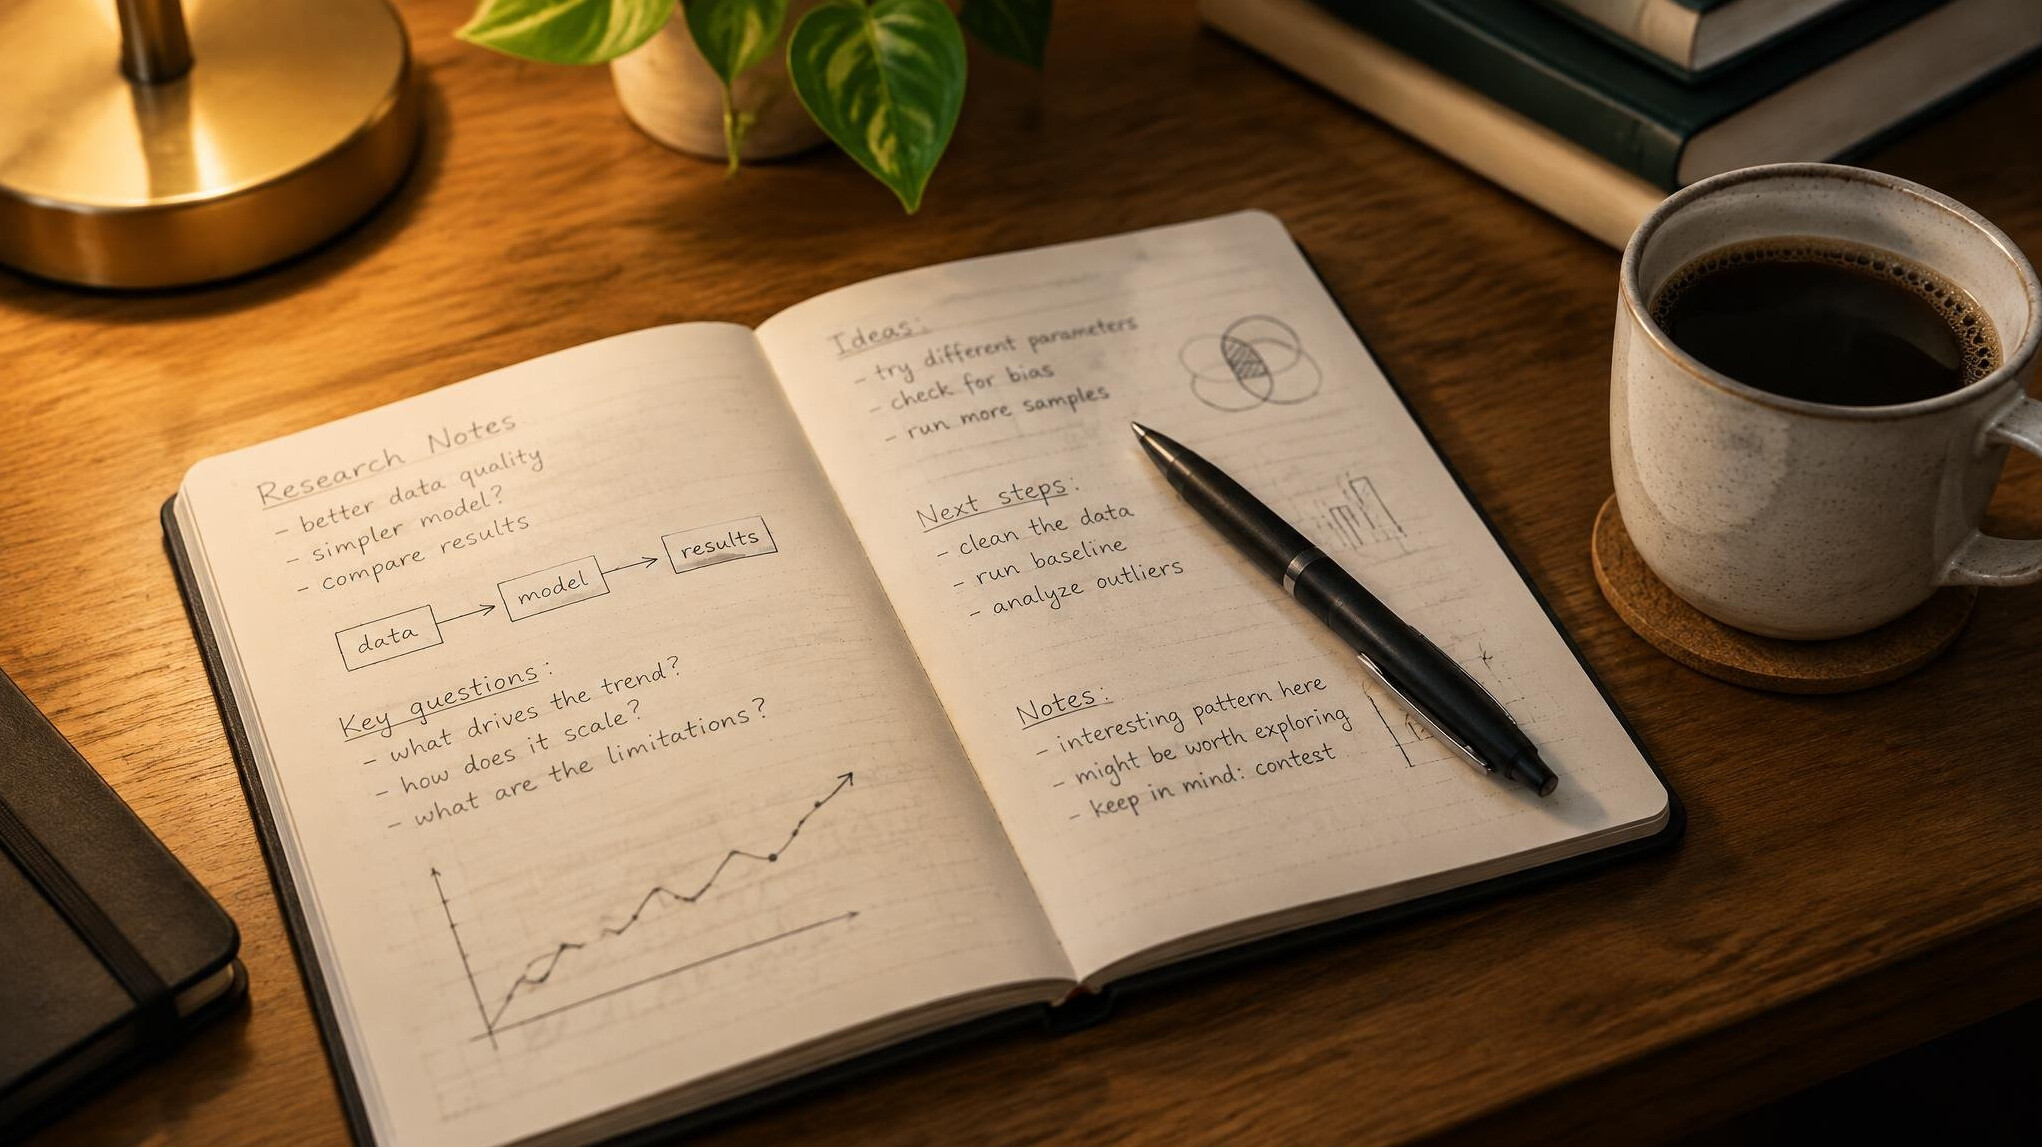 Research Notes
- better data quality
- simpler model?
- compare results
data
model
results
Key questions:
- what drives the trend?
- how does it scale?
- what are the limitations?
Ideas:
- try different parameters
- check for bias
- run more samples
Next steps:
- clean the data
- run baseline
- analyze outliers
Notes:
- interesting pattern here
- might be worth exploring
- keep in mind: contest